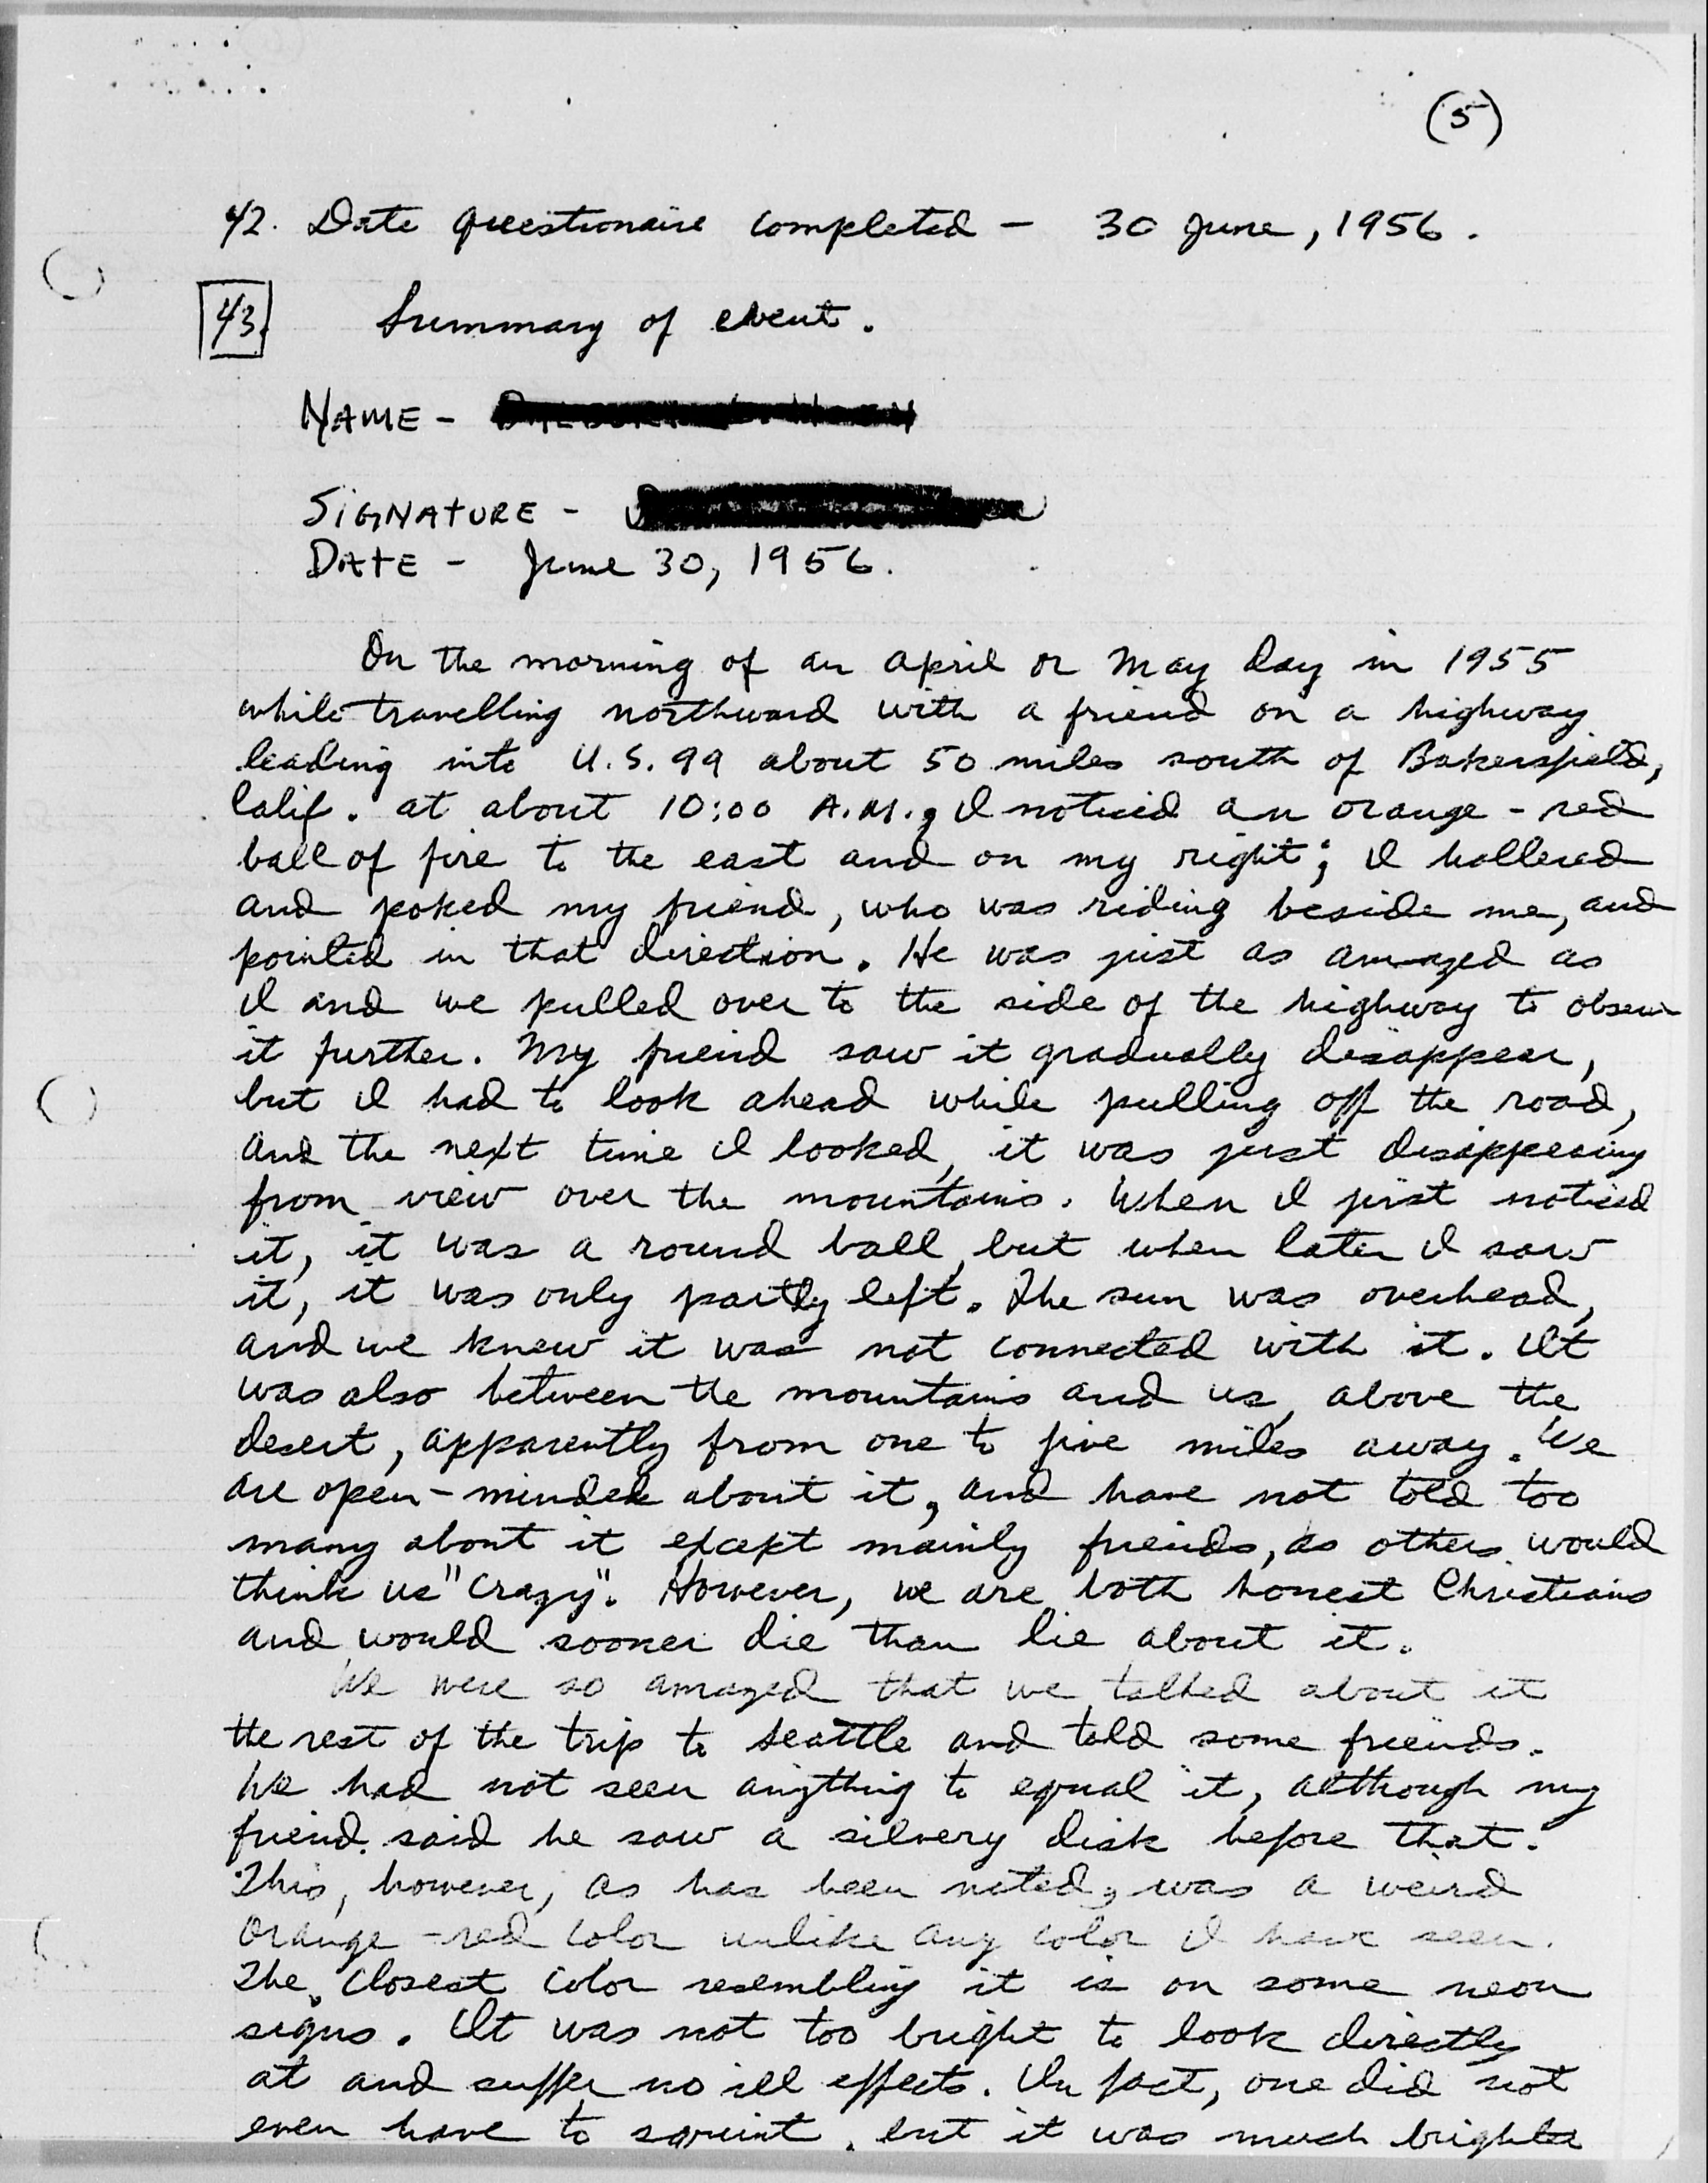 (5)
42. Date questionaire completed - 30 June, 1956.
43. Summary of event.
NAME -
SIGNATURE -
DATE - June 30, 1956.
On the morning of an April or May day in 1955
while travelling northward with a friend on a highway
leading into U.S. 99 about 50 miles south of Bakersfield,
Calif. at about 10:00 A.M., I noticed an orange-red
ball of fire to the east and on my right; I hollered
and poked my friend, who was riding beside me, and
pointed in that direction. He was just as amazed as
I and we pulled over to the side of the highway to observe
it further. My friend saw it gradually disappear,
but I had to look ahead while pulling off the road,
and the next time I looked, it was just disappearing
from view over the mountains. When I first noticed
it, it was a round ball, but when later I saw
it, it was only partly left. The sun was overhead,
and we knew it was not connected with it. It
was also between the mountains and us, above the
desert, apparently from one to five miles away. We
are open-minded about it, and have not told too
many about it except mainly friends, as others would
think us "crazy". However, we are both honest Christians
and would sooner die than lie about it.
We were so amazed that we talked about it
the rest of the trip to Seattle and told some friends.
We had not seen anything to equal it, although my
friend said he saw a silvery disk before that.
This, however, as has been noted, was a weird
orange-red color unlike any color I have seen.
The closest color resembling it is on some neon
signs. It was not too bright to look directly
at and suffer no ill effects. In fact, one did not
even have to squint, but it was much brighter